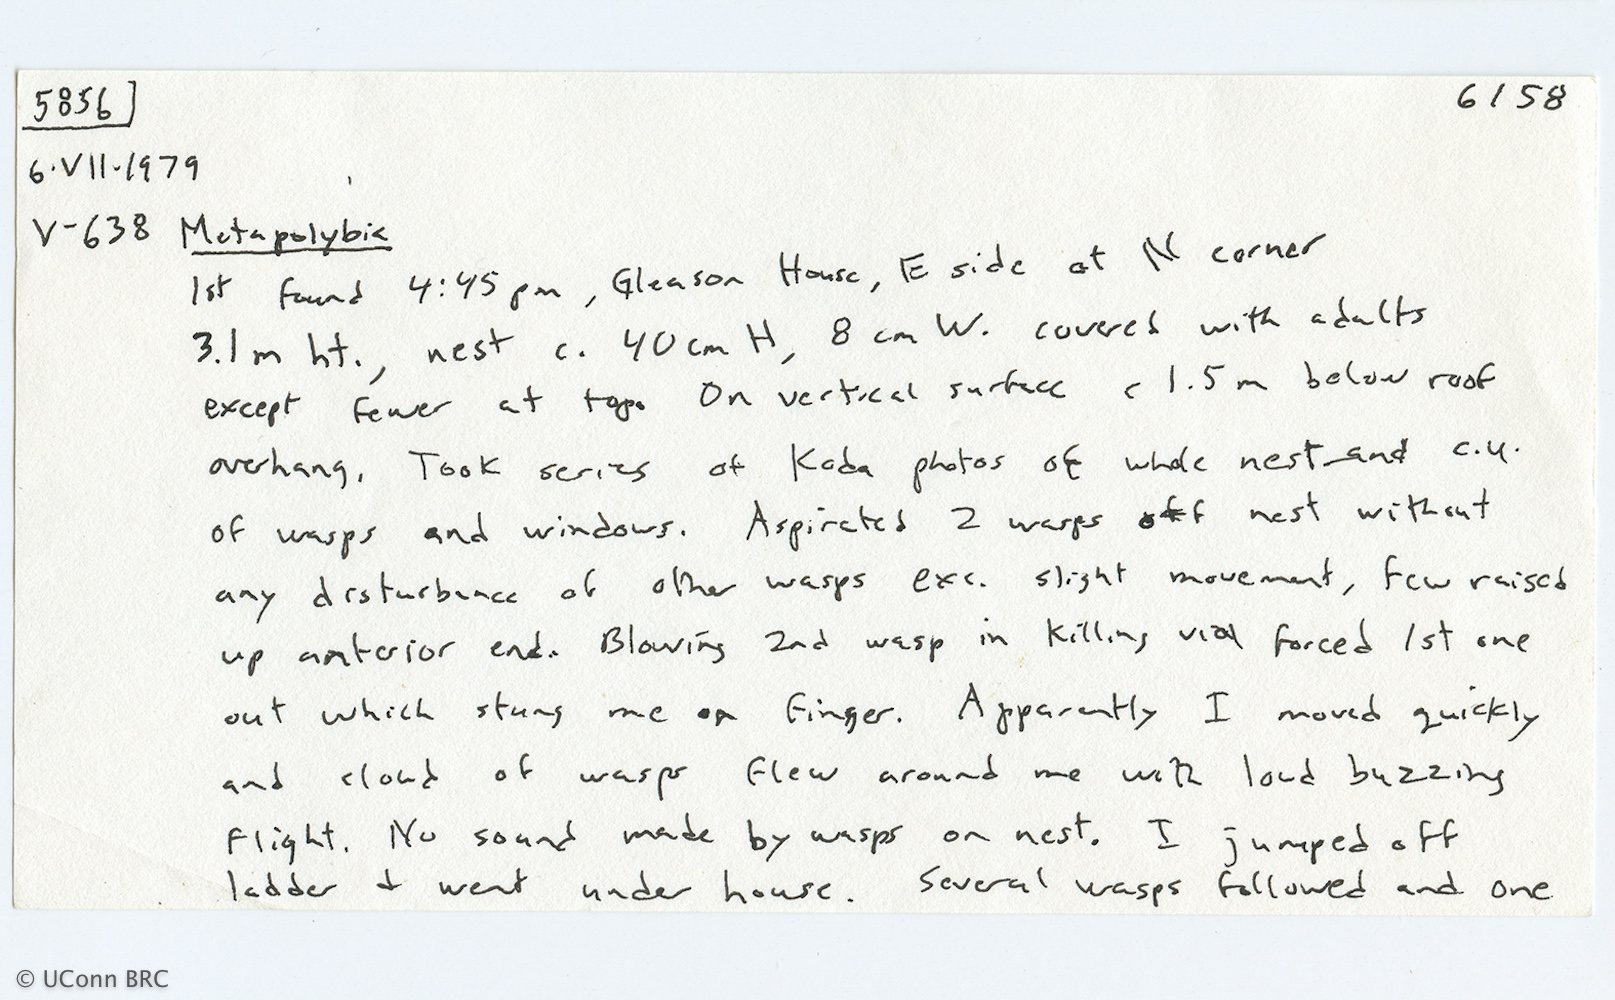 5856] 6158
6·VII·1979
V-638 Metapolybia
1st found 4:45 pm, Gleason House, E side at N corner
3.1 m ht., nest c. 40 cm H, 8 cm W. covered with adults
except fewer at top. On vertical surface c 1.5 m below roof
overhang. Took series of Koda photos of whole nest and c.u.
of wasps and windows. Aspirated 2 wasps off nest without
any disturbance of other wasps exc. slight movement, few raised
up anterior end. Blowing 2nd wasp in killing vial forced 1st one
out which stung me on finger. Apparently I moved quickly
and cloud of wasps flew around me with loud buzzing
flight. No sound made by wasps on nest. I jumped off
ladder + went under house. Several wasps followed and one
© UConn BRC